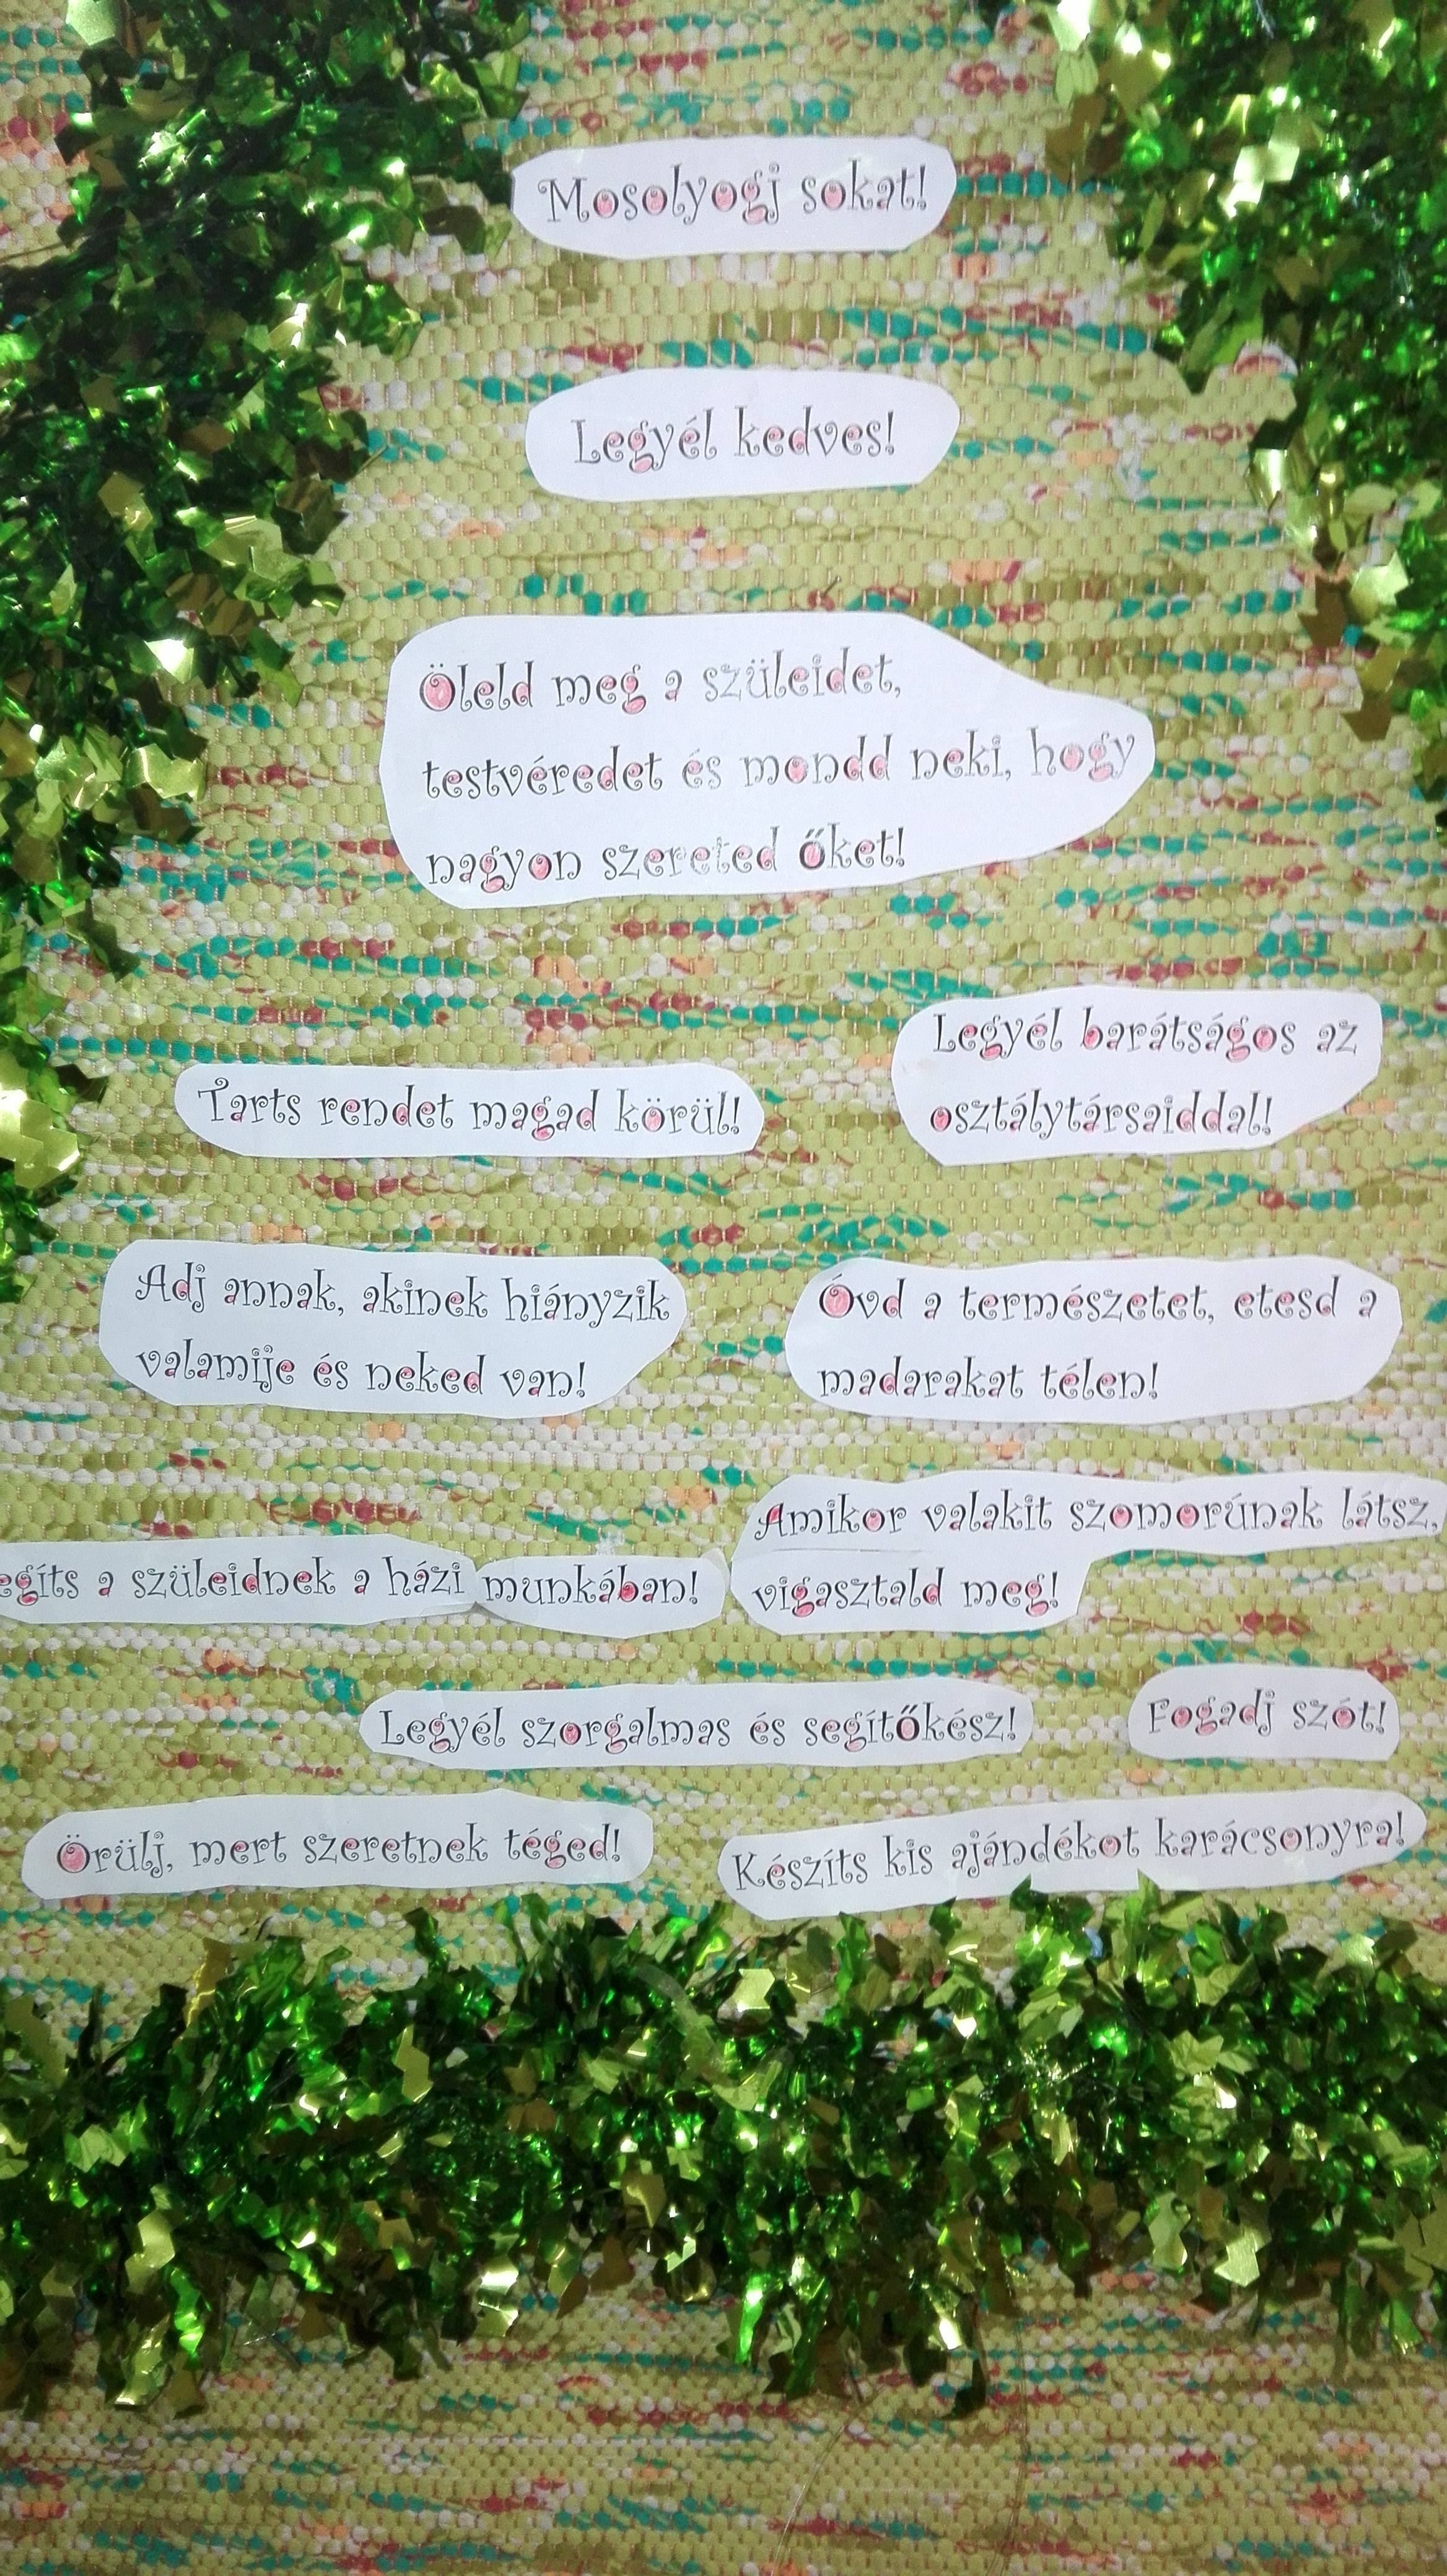 Mosolyogj sokat!
Legyél kedves!
Öleld meg a szüleidet,
testvéredet és mondd neki, hogy
nagyon szereted őket!
Tarts rendet magad körül!
Legyél barátságos az
osztálytársaiddal!
Adj annak, akinek hiányzik
valamije és neked van!
Óvd a természetet, etesd a
madarakat télen!
egíts a szüleidnek a házi munkában!
Amikor valakit szomorúnak látsz,
vigasztald meg!
Legyél szorgalmas és segítőkész!
Fogadj szót!
Örülj, mert szeretnek téged!
Készíts kis ajándékot karácsonyra!